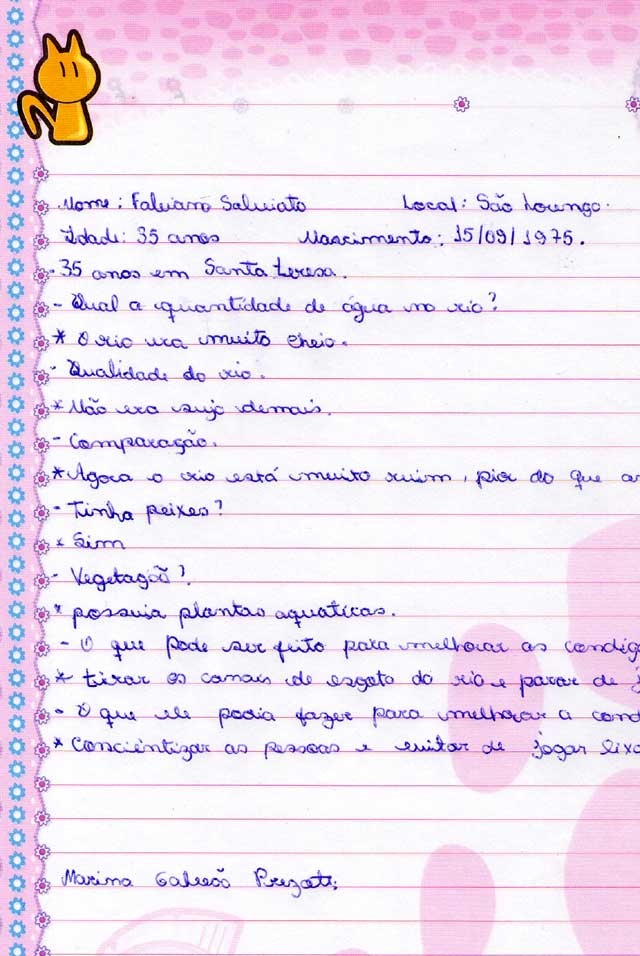 Nome: Fabiano Salviato Local: São Lourenço.
Idade: 35 anos Nascimento: 15/09/1975.
35 anos em Santa Teresa.
- Qual a quantidade de água no rio?
* O rio era muito cheio.
- Qualidade do rio.
* Não era sujo demais.
- Comparação.
* Agora o rio está muito ruim, pior do que
- Tinha peixes?
* Sim
- Vegetação?
* possuia plantas aquaticas.
- O que pode ser feito para melhorar as
* tirar os canais de esgoto do rio e parar de
- O que ele podia fazer para melhorar a
* Conscientizar as pessoas e evitar de jogar lixo
Marina